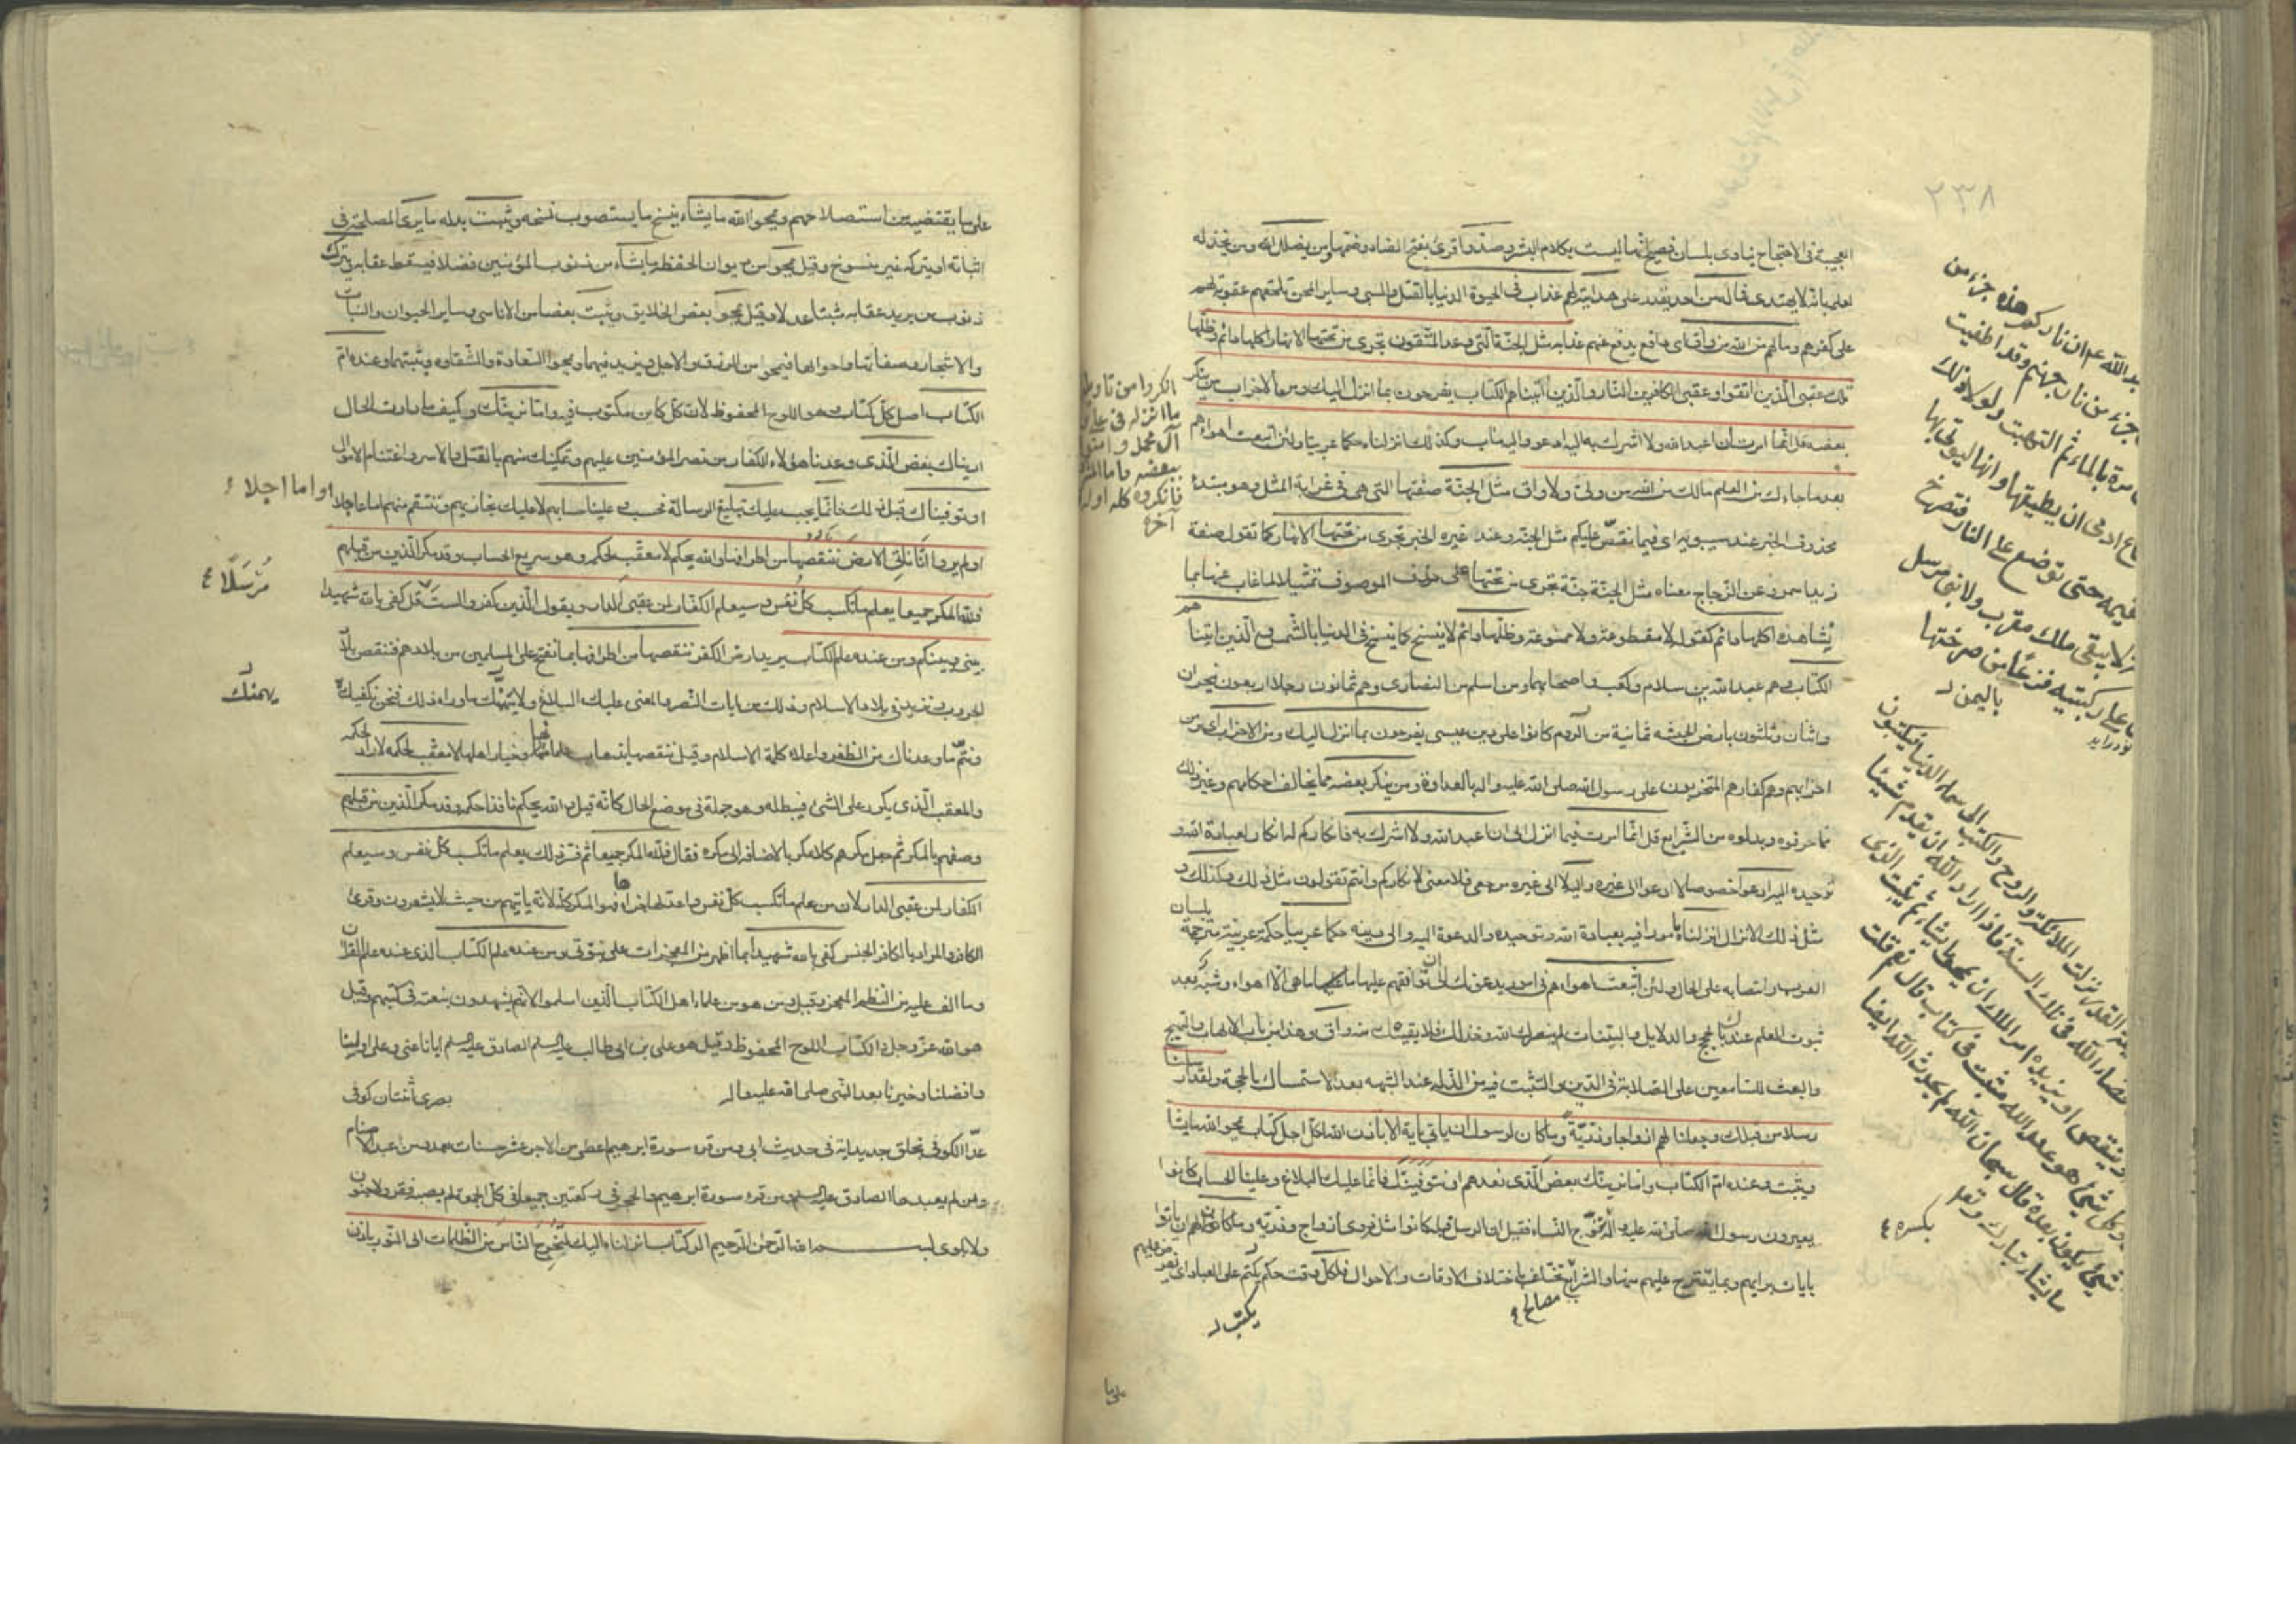 ٢٣٨
العجيبة في الاحتجاج ينادى بلسان فصيح انها ليست بكلام البشر وصدوا قرئ بفتح الصاد وضمها ومن يضلل الله ومن يخذله
لعلمه بانه لا يهتدى فما له من احد يقدر على هدايته لهم عذاب في الحيوة الدنيا بالقتل والسبى وساير المحن تلحقهم عقوبة لهم
على كفرهم وما لهم من الله من واق اى دافع يدفع عنهم عذابه مثل الجنة التى وعد المتقون تجرى من تحتها الانهار اكلها دائم وظلها
تلك عقبى الذين اتقوا وعقبى الكافرين النار والذين اتيناهم الكتاب يفرحون بما انزل اليك ومن الاحزاب من ينكر
بعضه قل انما امرت ان اعبد الله ولا اشرك به اليه ادعو واليه مآب وكذلك انزلناه حكما عربيا ولئن اتبعت اهواءهم
بعد ما جاءك من العلم مالك من الله من ولى ولا واق مثل الجنة صفتها التى هى في غرابة المثل وهو مبتدا
محذوف الخبر عند سيبويه اى فيما نقص عليكم مثل الجنة وعند غيره الخبر تجرى من تحتها الانهار كما تقول صفة
زيد اسمر وعن الزجاج معناه مثل الجنة جنة تجرى من تحتها على حذف الموصوف تمثيلا لما غاب عنا بما
يشاهده اكلها دائم كقوله لا مقطوعة ولا ممنوعة وظلها دائم لا ينسخ كما ينسخ في الدنيا بالشمس والذين اتيناهم
الكتاب هم عبد الله بن سلام وكعب واصحابهما ومن اسلم من النصارى وهم ثمانون رجلا اربعون بنجران
واثنان وثلثون بارض الحبشه ثمانية من الروم كانوا على دين عيسى يفرحون بما انزل اليك ومن الاحزاب اى ومن
احزابهم وهم كفارهم المتحزبون على رسول الله صلى الله عليه واله بالعداوة ومن ينكر بعضه مما يخالف احكامهم وغير ذلك
مما حرفوه وبدلوه من الشرايع قل انما امرت فيما انزل الى ان اعبد الله ولا اشرك به فانكاركم له انكار لعبادة الله و
توحيده اليه ادعوا خصوصا لا ادعو الى غيره واليه لا الى غيره مرجعى فلا معنى لانكاركم وانتم تقولون مثل ذلك وكذلك و
مثل ذلك الانزال انزلناه مأمورا فيه بعبادة الله وتوحيده والدعوة اليه والى دينه حكما عربيا حكمة عربية مترجمة بلسان
العرب وانتصابه على الحال ولئن اتبعت اهواءهم في امور يدعونك الى ان توافقهم عليها ما هى الا اهواء وشبه بعد
ثبوت العلم عندك بالحجج والدلايل والبينات لم ينصرك الله وخذلك فلا يقيك منه واق وهذا من باب الالهاب والتهييج
والبعث للسامعين على الصلابة في الدين والتثبت فيه من الزلة عند الشبهة بعد الاستمساك بالحجة ولقد ارسلنا
رسلا من قبلك وجعلنا لهم ازواجا وذرية وما كان لرسول ان ياتى باية الا باذن الله لكل اجل كتاب يمحو الله ما يشا
ويثبت وعنده ام الكتاب واما نرينك بعض الذى نعدهم او نتوفينك فانما عليك البلاغ وعلينا الحساب كانوا
يعيرون رسول الله صلى الله عليه واله بتزوج النساء فقيل ان الرسل قبله كانوا مثله ذوى ازواج وذرية وما كان لهم ان ياتوا
بايات برايهم وبما يقترح عليهم منها والشرائع تختلف باختلاف الاوقات والاحوال فلكل وقت حكم يكتب على العباد اى يفرض عليهم
مصالح
يكتب
على ما
انكروا من تاويل
ما انزله في على و
آل محمد وامنوا
ببعضه واما المشركون
فانكروه كله اوله و
آخره
بد الله ع ان ناركم هذه جزء من
جزء من نار جهنم وقد اطفيت
مرة بالماء ثم التهبت ولولا ذلك
ما استطاع ادمى ان يطيقها وانها ليؤتى بها
القيمة حتى توضع على النار فتصرخ
لا يبقى ملك مقرب ولا نبى مرسل
على ركبتيه فزعا من صرختها
باليمن
القدر نزلت الملائكة والروح والكتبة الى سماء الدنيا فيكتبون
قضاء الله في تلك السنة فاذا اراد الله ان يقدم شيئا
وينقص او يزيد امر الملك ان يمحو ما يشاء ثم يثبت الذى
وكل شئ هو عند الله مثبت في كتاب قال نعم قلت
شئ يكون بعده قال سبحان الله ثم يحدث الله ايضا
ما يشاء تبارك وتعا
بكسره
على ما يقتضيه استصلاحهم ويمحوا الله ما يشاء ينسخ ما يستصوب نسخه ويثبت بدله ما يرى المصلحة في
اثباته او يتركه غير منسوخ وقيل يمحو من ديوان الحفظة ما يشاء من ذنوب المؤمنين فضلا فيسقط عقابه ويترك
ذنوب من يريد عقابه مثبتا عدلا وقيل يمحو بعض الخلايق ويثبت بعضا من الاناسى وساير الحيوان والنبات
والاشجار وصفاتها واحوالها فيمحو من الرزق والاجل ويزيد فيهما ويمحو السعادة والشقاوه ويثبتهما وعنده ام
الكتاب اصل كل كتاب وهو اللوح المحفوظ لان كل كاين مكتوب فيه واما نرينك وكيف ما دارت الحال
اريناك بعض الذى وعدنا هؤلاء الكفار من نصر المؤمنين عليهم وتمكينك منهم بالقتل والاسر واغتنام الاموال
او توفيناك قبل ذلك فانما يجب عليك تبليغ الرسالة فحسب وعلينا حسابهم لا عليك نجازيهم وننتقم منهم اما عاجلا
او اما اجلا
اولم يروا انا ناتى الارض ننقصها من اطرافها والله يحكم لا معقب لحكمه وهو سريع الحساب وقد مكر الذين من قبلهم
فلله المكر جميعا يعلم ما تكسب كل نفس وسيعلم الكفار لمن عقبى الدار ويقول الذين كفروا لست قل كفى بالله شهيدا
مرسلا
بينى وبينكم ومن عنده علم الكتاب يريد ارض الكفر ننقصها من اطرافها بما نفتح على المسلمين من بلادهم فننقص بلاد
الحرب ونزيد في بلاد الاسلام وذلك من ايات النصر والمعنى عليك البلاغ ولا يهمنك ما وراء ذلك فنحن نكفيكه
يهمنك
ونتم ما وعدناك من الظفر واعلاء كلمة الاسلام وقيل ننقصها بذهاب علمائها وخيار اهلها لا معقب لحكمه لا راد لحكمه
والمعقب الذى يكر على الشئ فيبطله وهو جملة في موضع الحال كانه قيل والله يحكم نافذا حكمه وقد مكر الذين من قبلهم
وصفهم بالمكر ثم جعل مكرهم كلا مكر بالاضافة الى مكره فقال فلله المكر جميعا ثم فسر ذلك يعلم ما تكسب كل نفس وسيعلم
الكفار لمن عقبى الدار لان من علم ما تكسب كل نفس واعد لها جزاءها فهو المكر كله لانه ياتيهم من حيث لا يشعرون وقرئ
الكافر والمراد بالكافر الجنس كفى بالله شهيدا بما اظهر من المعجزات على نبوتى ومن عنده علم الكتاب الذى عنده علم القرآن
وما الف عليه من النظم المعجز وقيل ومن هو من علماء اهل الكتاب الذين اسلموا لانهم يشهدون بنعته في كتبهم وقيل
هو الله عز وجل والكتاب اللوح المحفوظ وقيل هو على بن ابى طالب عليه السلم الصادق عليه السلم ايانا عنى وعلى اولنا
وافضلنا وخيرنا بعد النبى صلى الله عليه واله بصرى اثنتان كوفى
عد الكوفى بخلق جديد اية في حديث ابى ومن قرء سورة ابرهيم اعطى من الاجر عشر حسنات بعدد من عبد الاصنام
ومن لم يعبدها الصادق عليه السلم من قرء سورة ابرهيم والحجر في ركعتين جميعا في كل جمعة لم يصبه فقر ولا جنون
ولا بلوى بسم الله الرحمن الرحيم الر كتاب انزلناه اليك لتخرج الناس من الظلمات الى النور باذن